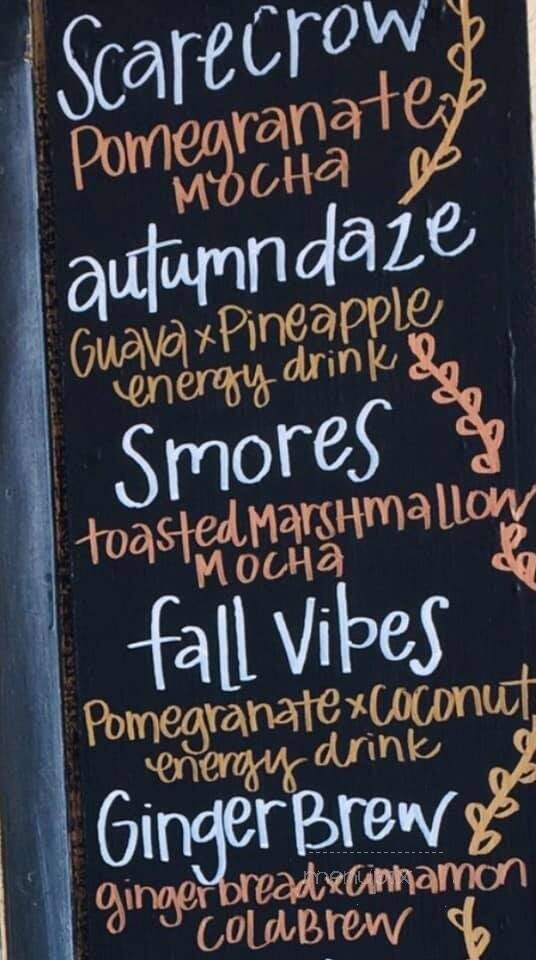 Scarecrow
Pomegranate
MOCHA
autumn daze
Guava x Pineapple
energy drink
Smores
toasted Marshmallow
MOCHA
fall Vibes
Pomegranate x Coconut
energy drink
Ginger Brew
gingerbread x Cinnamon
Cold Brew
menupix